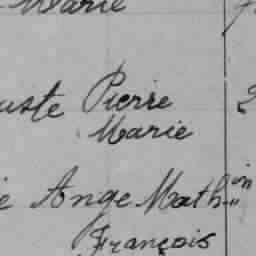 Marie
uste Pierre 2
Marie
e Ange Math in
François